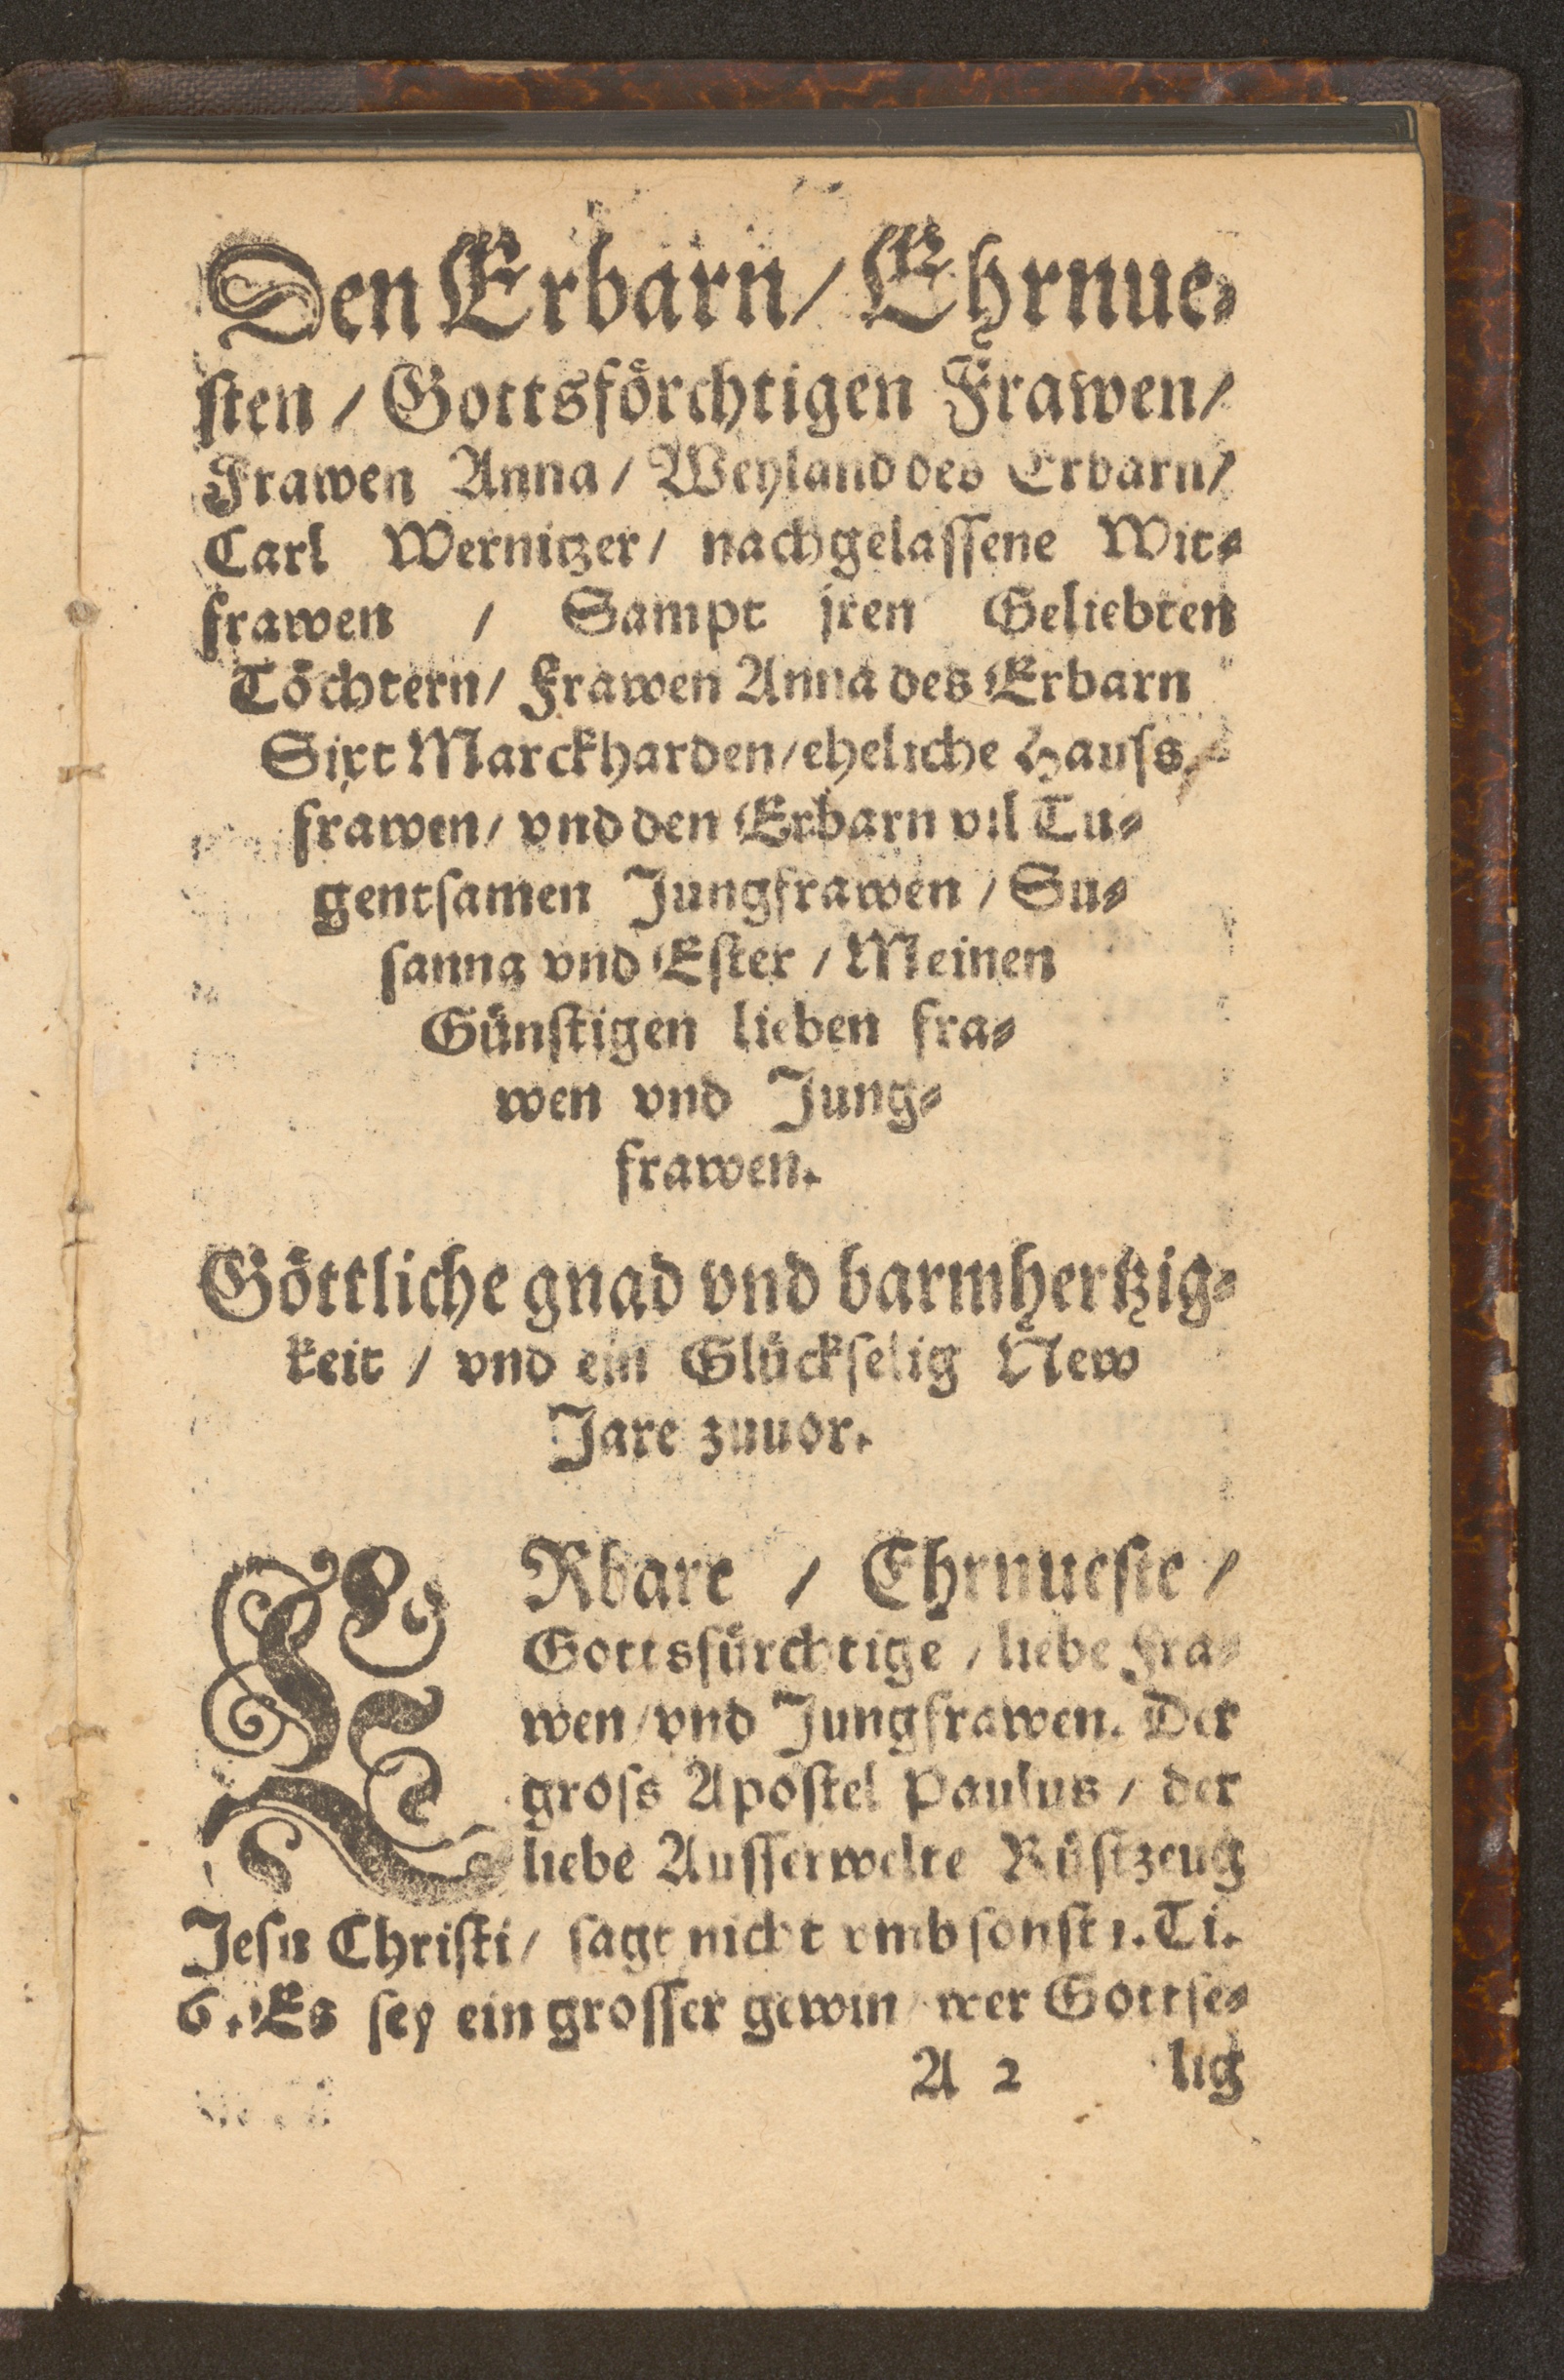 Den Erbarn/ Ehrnue⸗
ſten / Gottsförchtigen Frawen/
Frawen Anna/ Weyland des Erbarn/
Carl Wernitzer/ nachgelaſſene Wit⸗
frawen / Sampt jren Geliebten
Töchtern/ Frawen Anna des Erbarn
Sixt Marckharden/ eheliche Hauſs⸗
frawen/ vnd den Erbarn vil Tu⸗
gentſamen Jungfrawen / Su⸗
ſanna vnd Eſter / Meinen
Günſtigen lieben fra⸗
wen vnd Jung⸗
frawen.
Göttliche gnad vnd barmhertzig⸗
keit / vnd ein Glückſelig New
Jare zuuor.
ERbare / Ehrnueſte /
Gottsfürchtige / liebe Fra⸗
wen/ vnd Jungfrawen. Der
groſs Apoſtel Paulus / der
liebe Auſſerwelte Rüſtzeug
Jeſu Chriſti/ ſagt nicht vmb ſonſt 1. Ti.
6. Es ſey ein groſſer gewin/ wer Gottſe⸗
A 2 lig